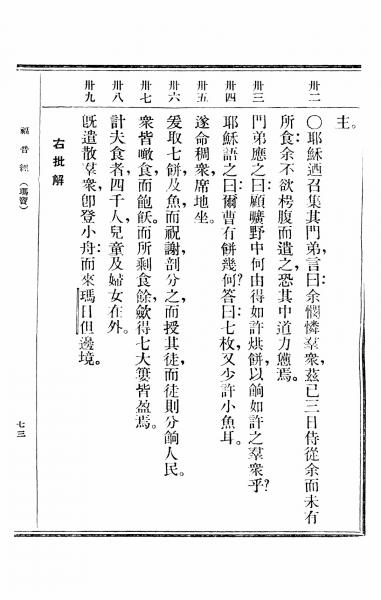 主。
卅二 〇耶穌迺召集其門弟言曰:余憫憐羣衆,茲已三日侍從余而未有
所食余不欲枵腹而遣之,恐其中道力憊焉。
卅三 門弟應之曰:顧曠野中何由得如許烘餅以餉如許之羣衆乎?
卅四 耶穌語之曰:爾曹有餅幾何?答曰:七枚,又少許小魚耳。
卅五 遂命稠衆席地坐。
卅六 爰取七餅及魚而祝謝,剖分之而授其徒,而徒則分餉人民。
卅七 衆皆噉食而飽飫。而所剩食餘,斂得七大簍皆盈焉。
卅八 計夫食者,四千人,兒童及婦女在外。
卅九 旣遣散羣衆,卽登小舟:而來瑪日但邊境。
右批解
福音經(瑪竇)
七三